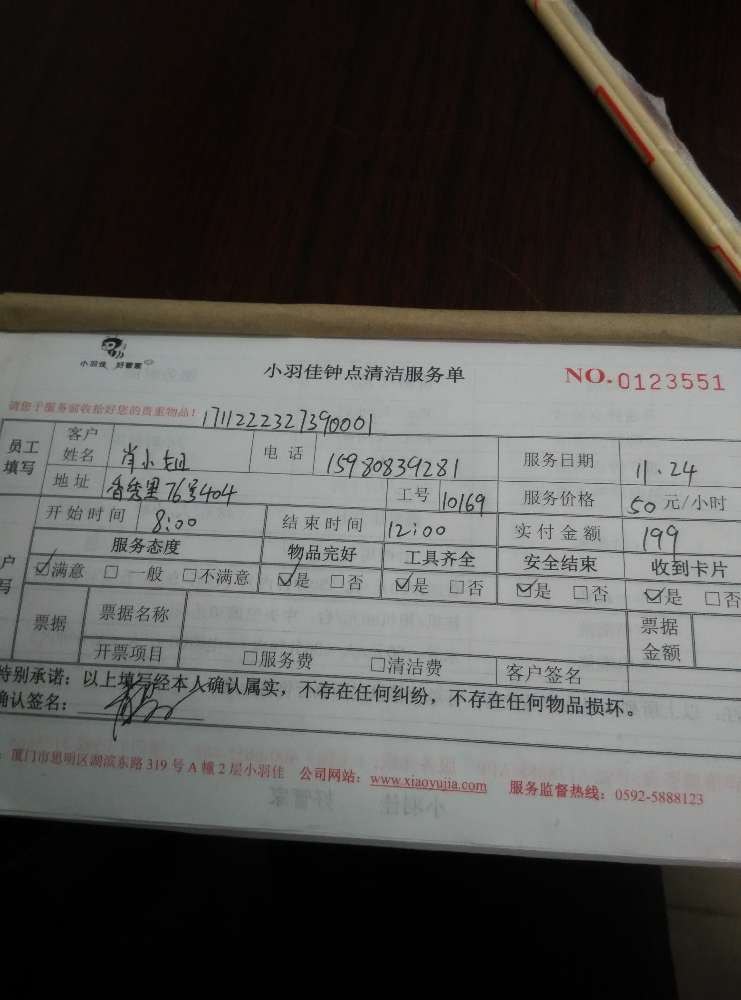 小羽佳 好管家
小羽佳钟点清洁服务单
NO.0123551
请您于服务前收拾好您的贵重物品！ 1711222327390001
员工填写 客户姓名 肖小姐 电话 15980839281 服务日期 11.24
地址 香秀里76号404 工号 10169 服务价格 50 元/小时
开始时间 8:00 结束时间 12:00 实付金额 199
户写 服务态度 物品完好 工具齐全 安全结束 收到卡片
☑满意 □一般 □不满意 ☑是 □否 ☑是 □否 ☑是 □否 ☑是 □否
票据 票据名称 票据金额
开票项目 □服务费 □清洁费 客户签名
特别承诺：以上填写经本人确认属实，不存在任何纠纷，不存在任何物品损坏。
确认签名：
：厦门市思明区湖滨东路 319 号 A 幢 2 层小羽佳 公司网站：www.xiaoyujia.com 服务监督热线：0592-5888123